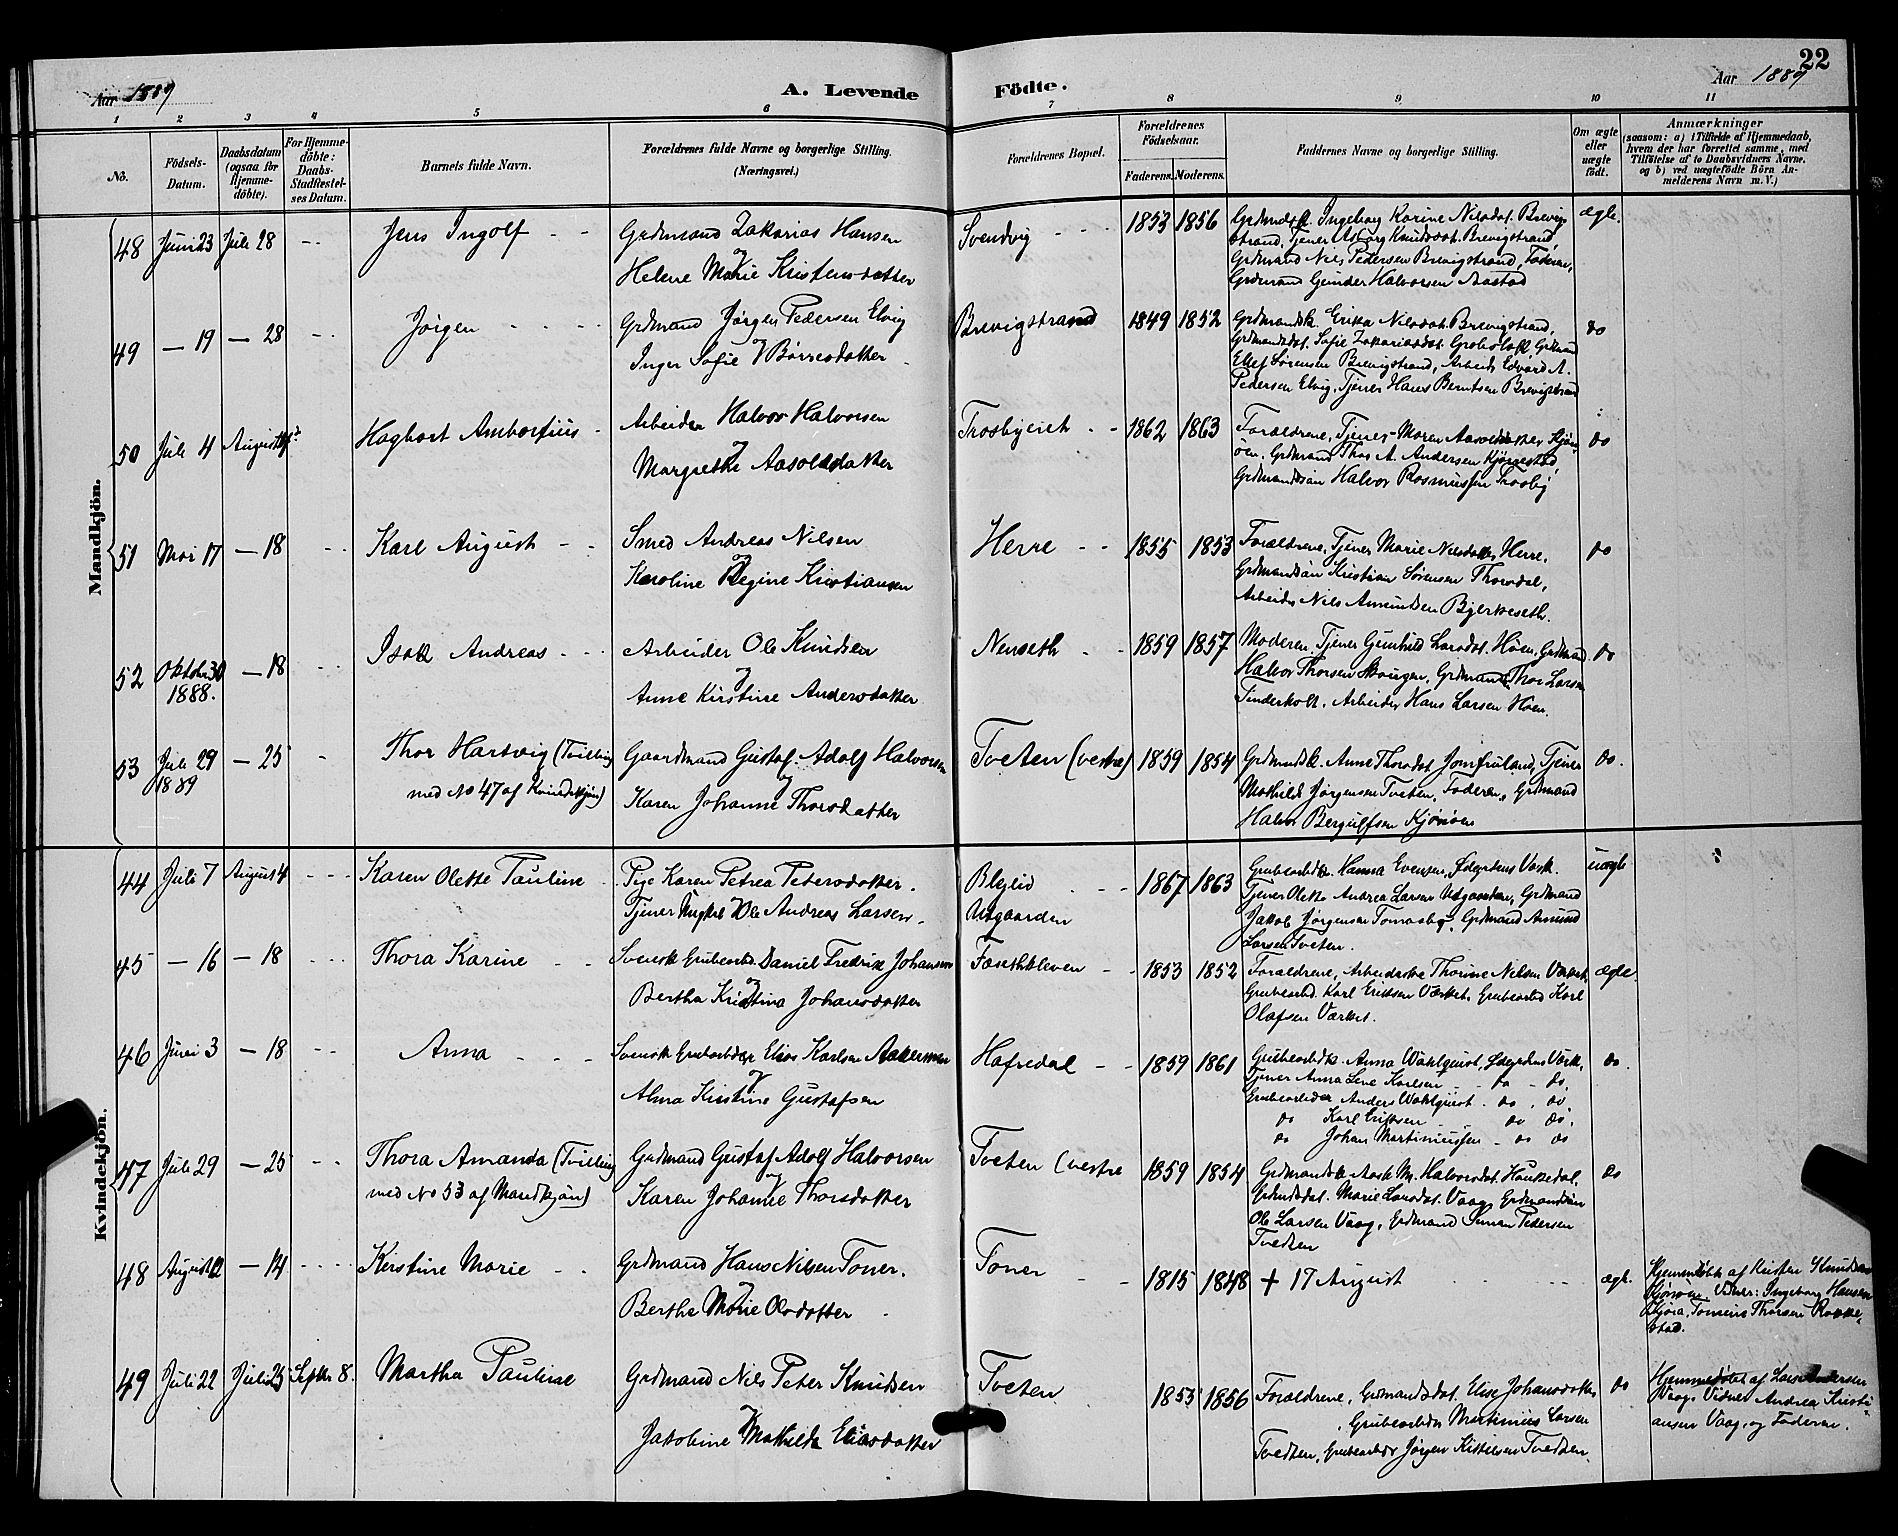 22
Aar 1889
A. Levende Födte.
Aar 1889
1 2 3 4 5 6 7 8 9 10 11
No.
Födsels-Datum.
Daabsdatum (ogsaa for Hjemme-döbte).
For Hjemme-döbte: Daabs-Stadfæstel-ses Datum.
Barnets fulde Navn.
Forældrenes fulde Navne og borgerlige Stilling.
(Næringsvei.)
Forældrenes Bopæl.
Forældrenes Födselsaar.
Faderens. Moderens.
Faddernes Navne og borgerlige Stilling.
Om ægte eller uægte født.
Anmærkninger
(saasom: a) i Tilfælde af Hjemmedaab, hvem der har forrettet samme, med Tilföielse af to Daabsvidners Navne, og b) ved uægtefödte Börn An-melderens Navn m. V.)
Mandkjön.
48 Juni 23 Juli 28 Jens Ingolf Grdmand Zakarias Hansen
Helene Marie Kristensdatter
Svendvig 1853 1856
Grdmdsk. Ingeborg Karine Nilsdat. Brevig
strand, Tjener Asborg Knudsdat. Brevigstrand,
Grdmand Nils Pedersen Brevigstrand, Faderen,
Grdmand Gunder Halvorsen Aastad
ægte.
49 — 19 — 28 Jørgen Grdmand Jørgen Pedersen Elvig
Inger Sofie Børresdatter
Brevigstrand 1849 1852
Grdmandsk. Erika Nilsdat. Brevigstrand,
Grdmandsdat. Sofie Zakariasdat. Grobstok, Grdmand
Ellef Sørensen Brevigstrand, Arbeids. Edvard A.
Pedersen Elvig, Tjener Hans Berntsen Brevigstrand
do
50 Juli 4 August Hagbart Ambortius Arbeider Halvor Halvorsen
Margrethe Aasoldsdatter
Trosbyeiet 1862 1863
Forældrene, Tjener Maren Aasoldsdatter Kjøn-
øen, Grdmand Thor A. Andersen Kjørrestad,
Grdmandssøn Halvor Rasmussen Trosby
do
51 Mai 17 — 18 Karl August Smed Andreas Nilsen
Karoline Regine Kristiansen
Herre 1855 1853
Forældrene, Tjener Marie Nilsdatter Herre,
Grdmandssøn Kristian Sørensen Thorsdal,
Arbeider Nils Amundsen Bjerkeseth.
do
52 Oktober 30 1888. — 18 Isak Andreas Arbeider Ole Knudsen
Anne Kirstine Andersdatter
Nenseth 1859 1857
Moderen, Tjener Gunhild Larsdat. Høen, Grdmand
Halvor Thorsen Skougen, Grdmand Thor Larsen
Tinderholt, Arbeider Hans Larsen Høen.
do
53 Juli 29 1889 — 25 Thor Hartvig (Tvilling
med No 47 af Kvindekjøn) Gaardmand Gustaf Adolf Halvorsen
Karen Johanne Thorsdatter
Tveten (vestre) 1859 1854
Grdmndsk. Anne Thorsdat. Jomfruland, Tjener
Mathilde Jørgensen Tveten, Faderen, Grdmand
Halvor Bergulfsen Kjønøen
do.
Kvindekjön.
44 Juli 7 August 4 Karen Olette Pauline Pige Karen Petrea Petersdatter.
Tjener Ungkal Ole Andreas Larsen
Blylid
Utgaarden
1867 1863
Grubearbdk. Hanna Evensen, Ødegrdens Værk.
Tjener Olette Andrea Larsen Utgaarden, Grdmand
Jakob Jørgensen Tomasby, Grdmand Amund
Larsen Tveten.
uægte
45 — 16 — 18 Thora Karine Svensk Grubearbd. Daniel Fredrik Johansen
Bertha Kristina Johansdatter
Fosethkleven 1853 1852
Forældrene, Arbeiderske Thorine Nilsen Værket,
Grubearbd. Karl Eriksen Værket, Grubearbd Karl
Olafsen Værket.
ægte
46 Juni 3 — 18 Anna Svensk Grubearbeider Elias Karlsen Aakerman
Alma Kirstine Gustafsen
Hafsedal 1859 1861
Grubearbdk. Anna Wahlquist, Ødegrdens Værk,
Tjener Anna Lene Karlsen do do.
Grubearbeider Anders Wahlquist do. do.
do Karl Eriksen do do.
do Johan Martiniussen do do
do.
47 Juli 29 — 25 Thora Amanda (Tvilling
med No 53 af Mandkjøn) Grdmand Gustaf Adolf Halvorsen
Karen Johanne Thorsdatter
Tveten (vestre 1859 1854
Grdmandsk. Aase M. Halvorsdat. Haukedal,
Grdmdsdat. Marie Larsdat. Vaag, Grdmandssøn
Ole Larsen Vaag, Grdmand Simon Pedersen
Tvedten
do
48 August 12 — 14 Kirstine Marie Grdmand Hans Nilsen Toner.
Berthe Marie Olsdatter
Toner 1815 1848 + 17 August ægt.
Hjemmedøbt af Kirsten Knudsen
Kjønøen. Vidner: Ingeborg Hansen
Kjøra, Tomine Thorsen Rokke-
stad.
49 Juli 22 Juli 25 Septbr 8. Martha Pauline Grdmand Nils Peter Knudsen
Jakobine Mathilde Eliasdatter
Tveten 1855 1856
Forældrene, Grdmandsdat. Elise Johansdatter,
Grubearbeider Martinius Larsen
Tvedten, Grubearbdr Jørgen Kittilsen Tvedten.
do
Hjemmedøbt af Lars Andersen
Vaag. Vidner Andrea Kristi-
ansen Vaag, og Faderen.